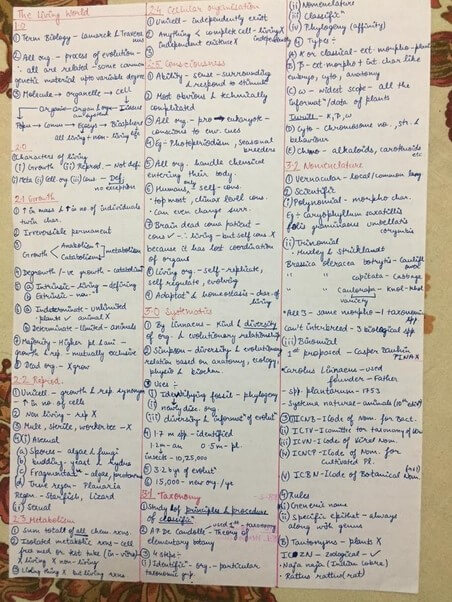 The Living World
1.0
① Term Biology - Lamarck &
② All org. - process of evolution -
∴ all are related - some common
genetic material upto variable degree
③ Molecule → organelle → cell
Popu ← Comm ← → Biosphere
all living + non-living
2.0
Characters of living
(i) Growth (ii) Reprod. - Not def.
2.1 Growth
① ↑ in mass & ↑ in no. of individuals
twin char.
② Irreversible permanent
③ Growth Anabolism↑ Catabolism↓ metabolism
④ Degrowth / -ve growth - catabolism
⑤ Intrinsic - living - defining
Extrinsic - non
⑥ Indeterminate - unlimited
plants ✓ animal X
Determinate - limited - animals
⑦ Majority - Higher pl & ani -
growth & rep - mutually exclusive
⑧ Dead org - X grow
2.2 Reprod.
① Unicell - growth & rep synonym
∴ ↑ in no. of cells
② Non living - rep X
③ Mule, sterile, worker bee - X
④ (i) Asexual
(a) Spores - algae & fungi
(b) budding - yeast & hydra
(c) Fragmentatn -
(d) True regen - Planaria
Regen - Starfish, lizard
(ii) Sexual
2.3 Metabolism
① Sum total of all chem. rxns
② Isolated metabolic rxns - cell
free med or test tube
X living X non-living
③ living thing X but living rxns
2.4 Cellular organisation
① Unicell - independently exist
② Anything < complete cell - living X
independently
independent existence X
2.5 Consciousness
① Ability - sense - surrounding
& respond to stimuli
② Most obvious & technically
complicated
③ All org - pro → eukaryote -
conscious to env. cues
④ Eg - Photoperiodism, seasonal
breeders
⑤ All org. handle chemical
entering their body.
⑥ Humans only - self-cons.
⑦ Brain dead coma patient -
cons ✓ ∴ living - but self cons X
because it has lost coordination
of organs
⑧ living org - self-replicate,
self regulate, evolving
⑨ Adaptn & homeostasis - char. of
living
3.0 Systematics
① By Linnaeus - Kind & diversity
of org. & evolutionary relationship
② Simpson - diversity & evolutionary
relation based on anatomy, ecology,
physio & biochem
③ Uses :
(i) Identifying fossil - phylogeny
(ii) newly disc. org
(iii) diversity & informatn of evolutn
④ 1.7 m spp - identified
1.2m - an 0.5m - pl.
insect - 10,25,000
⑥ 15,000 - new org / yr
3.1 Taxonomy
① Study of principles & procedure
of classificn
② AP De Candolle - Theory of
elementary botany
③ 4 steps -
(i) Identificn - org. - particular
taxonomic grp.
(ii) Nomenclature
(iii) Classificn
(iv) Phylogeny (affinity)
④ Types :
Ⓐ α or classical - ext. morpho - plant
Ⓑ β - ext morpho + int char like
embryo, cyto, anatomy
Ⓒ ω - widest scope - all the
informatn / data of plants
Ⓓ Cyto - chromosome no., str. &
behaviour
Ⓔ Chemo - alkaloids, carotenoids
etc
3.2 Nomenclature
① Vernacular - local / common lang
② Scientific
(i) Polynomial - morpho char.
Eg : Caryophyllum saxatilis
foliis gramineus umbellatis
corymbis
(ii) Trinomial
- Huxley & Strickland
Brassica oleracea botrytis - Cauliflower
" " capitata - Cabbage
" " - Knol-khol
variety
can't interbreed - 3 biological spp
(iii) Binomial
1st proposed - Casper Bauhin
PINAX
Carolus Linnaeus - used
founder - Father
spp. plantarum - 1753
Systema natural - animals
(i) ICNB - I Code of Nom. for Bact.
(ii) ICTV - I Committee for taxonomy of
(iii) ICVN - I Code of Viral Nom.
(iv) ICNCP - I Code of Nom. for
cultivated Pl.
(v) ICBN - I Code of Botanical Nom.
④ Rules
(i) Generic name
(ii) Specific epithet - always
along with genus
⑤ Tautonyms - plants X
ICZN - zoological - ✓
Naja naja (Indian cobra)
- Rattus rattus (rat)